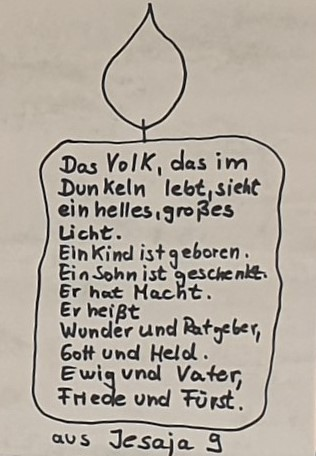 Das Volk, das im
Dunkeln lebt, sieht
ein helles, großes
Licht.
Ein Kind ist geboren.
Ein Sohn ist geschenkt.
Er hat Macht.
Er heißt
Wunder und Ratgeber,
Gott und Held.
Ewig und Vater,
Friede und Fürst.
aus Jesaja 9